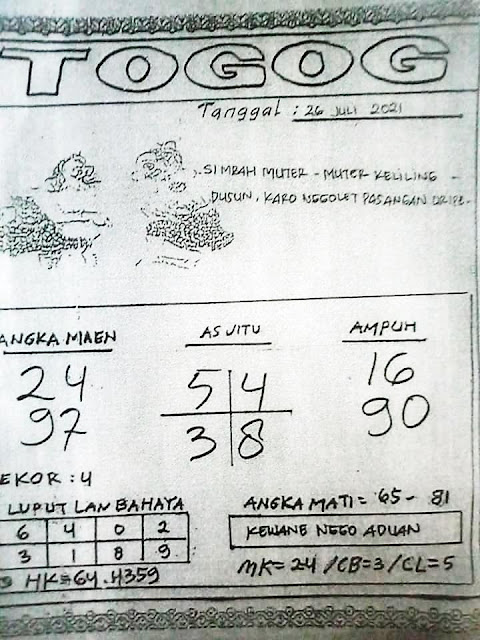 TOGOG
Tanggal : 26 JULI 2021
SI MBAH MUTER - MUTER KELILING -
DUSUN, KARO NGGOLET PASANGAN URIPE.
ANGKA MAEN
24
97
AS JITU
5 4
3 8
AMPUH
16
90
EKOR : 4
LUPUT LAN BAHAYA
6 4 0 2
3 1 8 9
HK=64.4359
ANGKA MATI = 65 - 81
KEWANE NGGO ADUAN
MK= 24 /CB=3/CL=5